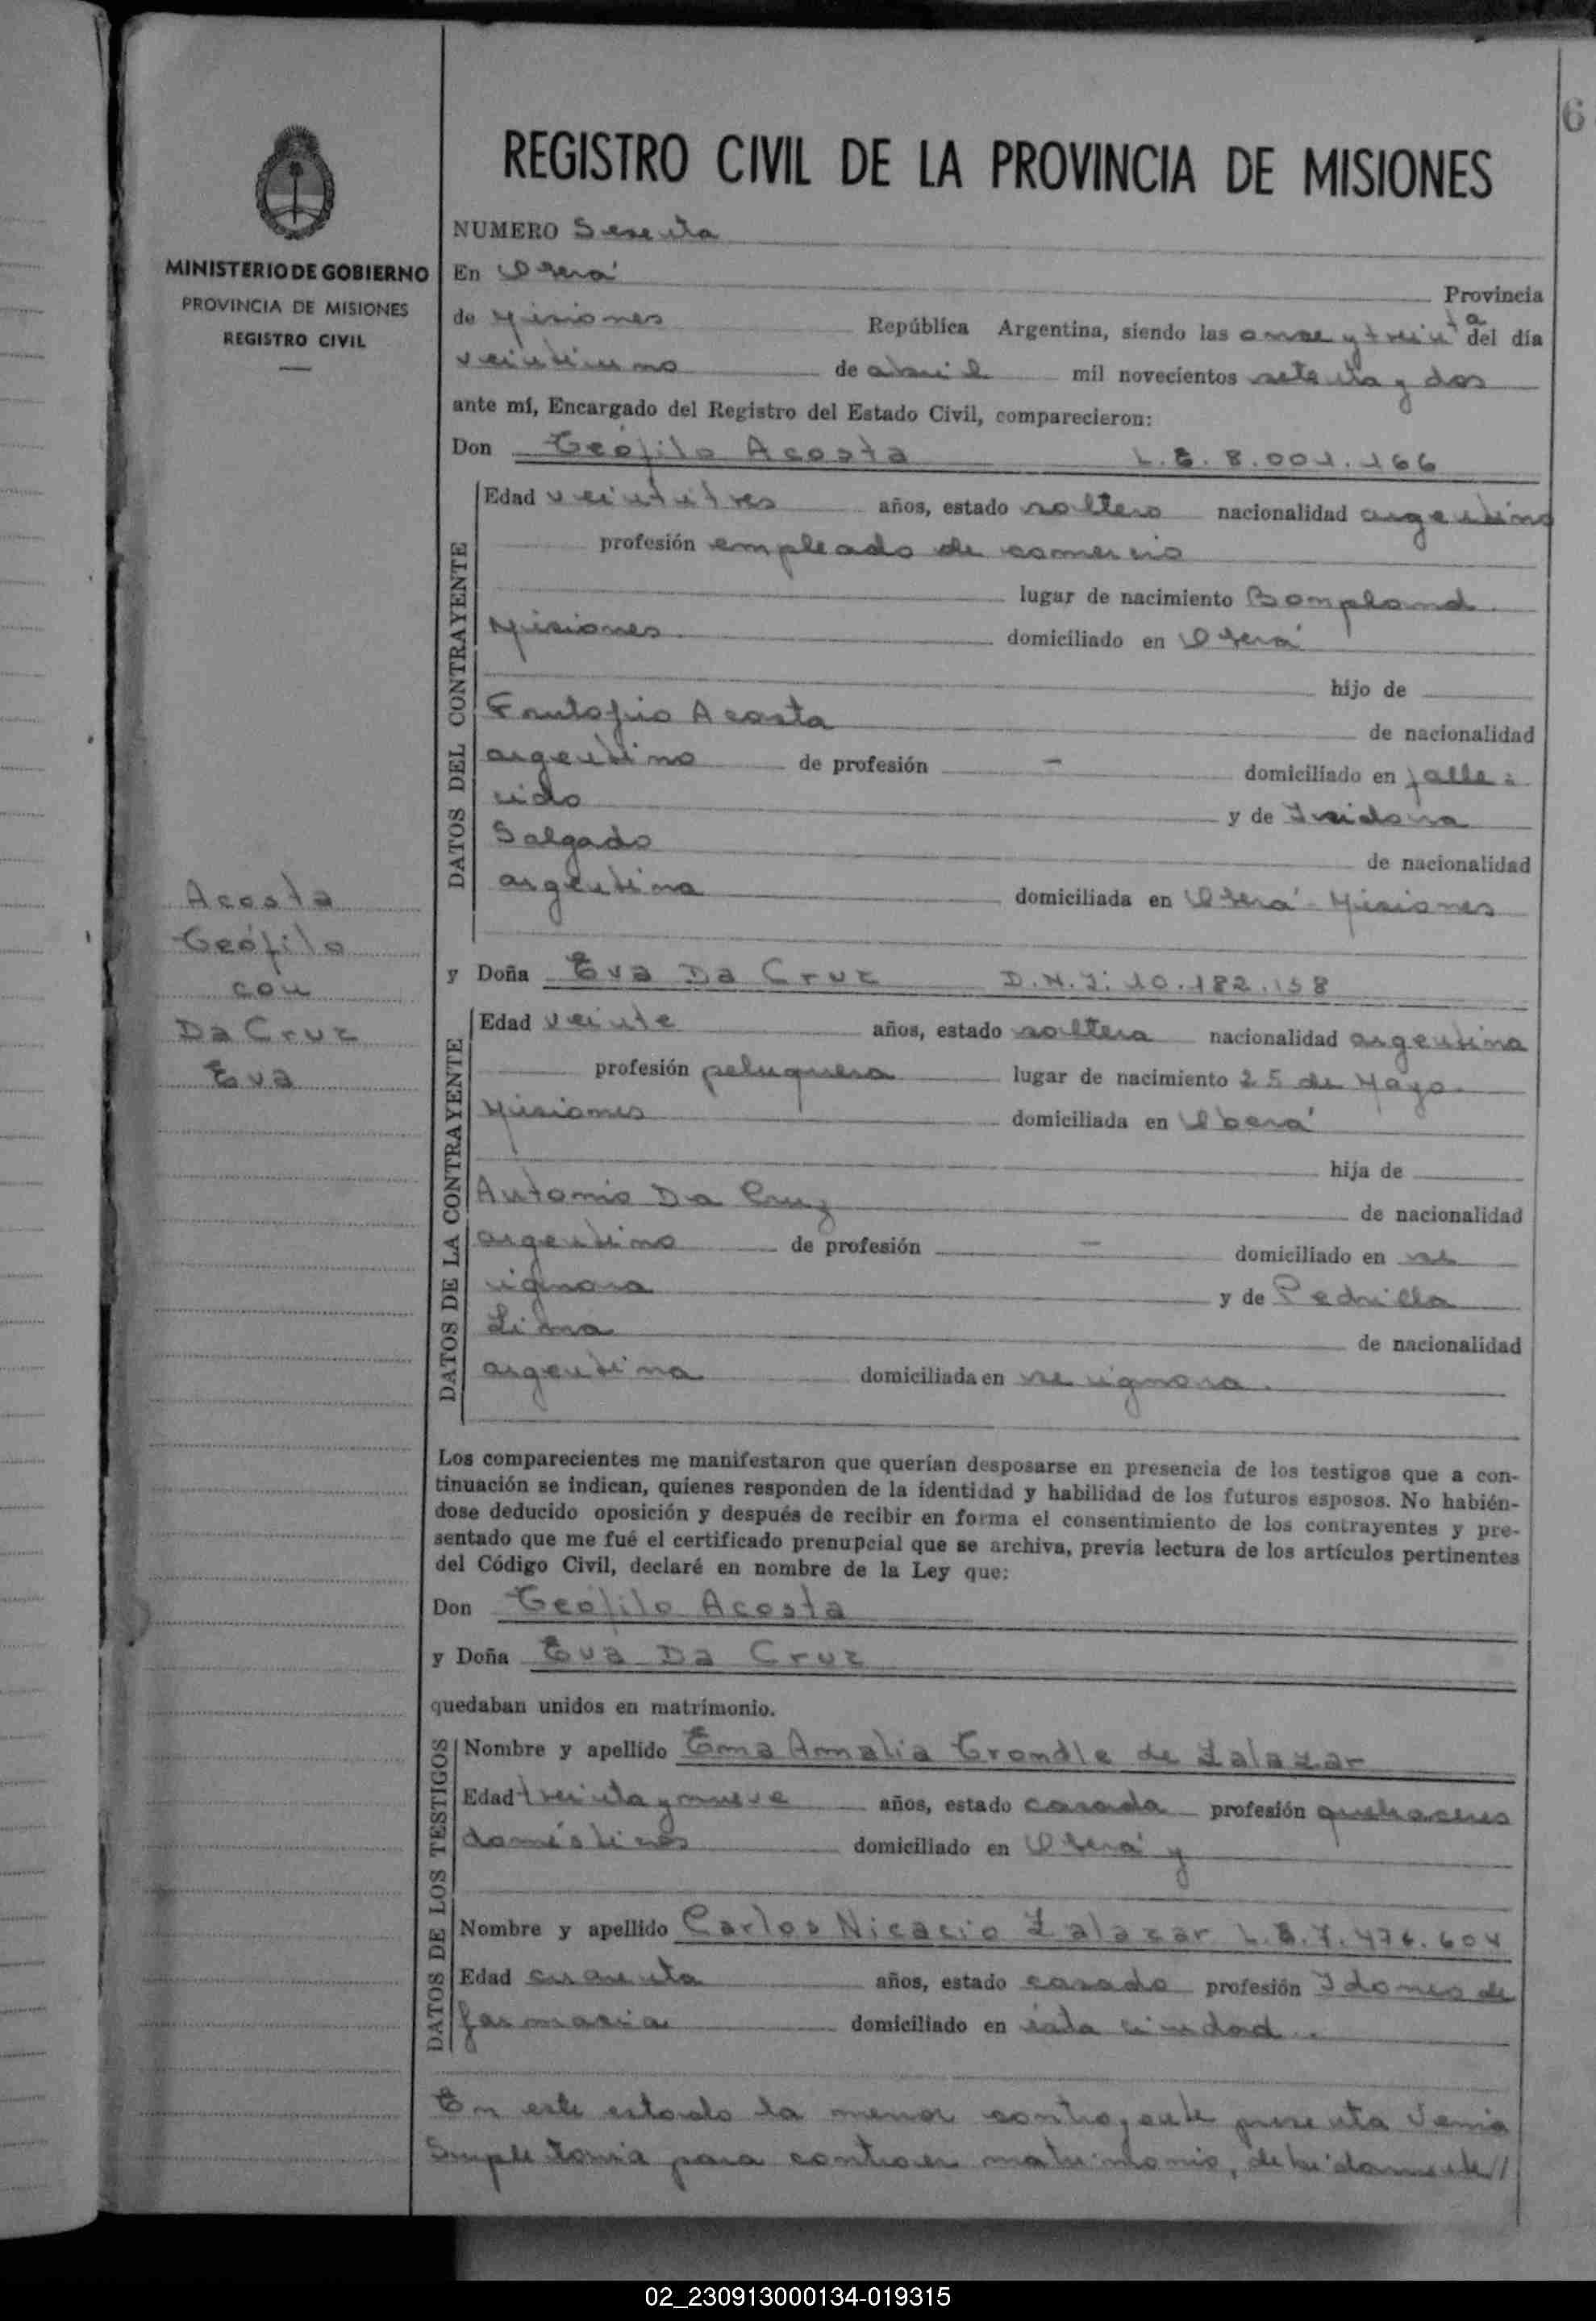 6
REGISTRO CIVIL DE LA PROVINCIA DE MISIONES
MINISTERIO DE GOBIERNO
PROVINCIA DE MISIONES
REGISTRO CIVIL
NUMERO Sesenta
En Oberá Provincia
de Misiones República Argentina, siendo las once y treinta del día
veintiuno de abril mil novecientos setenta y dos
ante mí, Encargado del Registro del Estado Civil, comparecieron:
Don Teófilo Acosta L.E. 8.001.166
DATOS DEL CONTRAYENTE
Edad veintitres años, estado soltero nacionalidad argentino
profesión empleado de comercio
lugar de nacimiento Bompland
Misiones domiciliado en Oberá
hijo de
Acosta de nacionalidad
argentino de profesión — domiciliado en falle=
cido y de Isidora
Salgado de nacionalidad
argentina domiciliada en Oberá - Misiones
Acosta
Teófilo
con
Da Cruz
Eva
y Doña Eva Da Cruz D.N.I: 10.182.158
DATOS DE LA CONTRAYENTE
Edad veinte años, estado soltera nacionalidad argentina
profesión peluquera lugar de nacimiento 25 de Mayo
Misiones domiciliada en Oberá
hija de
Antonio Da Cruz de nacionalidad
argentino de profesión — domiciliado en se
ignora y de Pedrilla
Lima de nacionalidad
argentina domiciliada en se ignora.
Los comparecientes me manifestaron que querían desposarse en presencia de los testigos que a con-
tinuación se indican, quienes responden de la identidad y habilidad de los futuros esposos. No habién-
dose deducido oposición y después de recibir en forma el consentimiento de los contrayentes y pre-
sentado que me fué el certificado prenupcial que se archiva, previa lectura de los artículos pertinentes
del Código Civil, declaré en nombre de la Ley que:
Don Teófilo Acosta
y Doña Eva Da Cruz
quedaban unidos en matrimonio.
DATOS DE LOS TESTIGOS
Nombre y apellido Ema Amalia Trondle de Zalazar
Edad treinta y nueve años, estado casada profesión quehaceres
domésticos domiciliado en Oberá y
Nombre y apellido Carlos Nicacio Zalazar L.E. 7.476.604
Edad cuarenta años, estado casado profesión Idoneo de
farmacia domiciliado en ésta ciudad.
En este estado la menor contrayente presenta Venia
Supletoria para contraer matrimonio, debidamente//
02_230913000134-019315